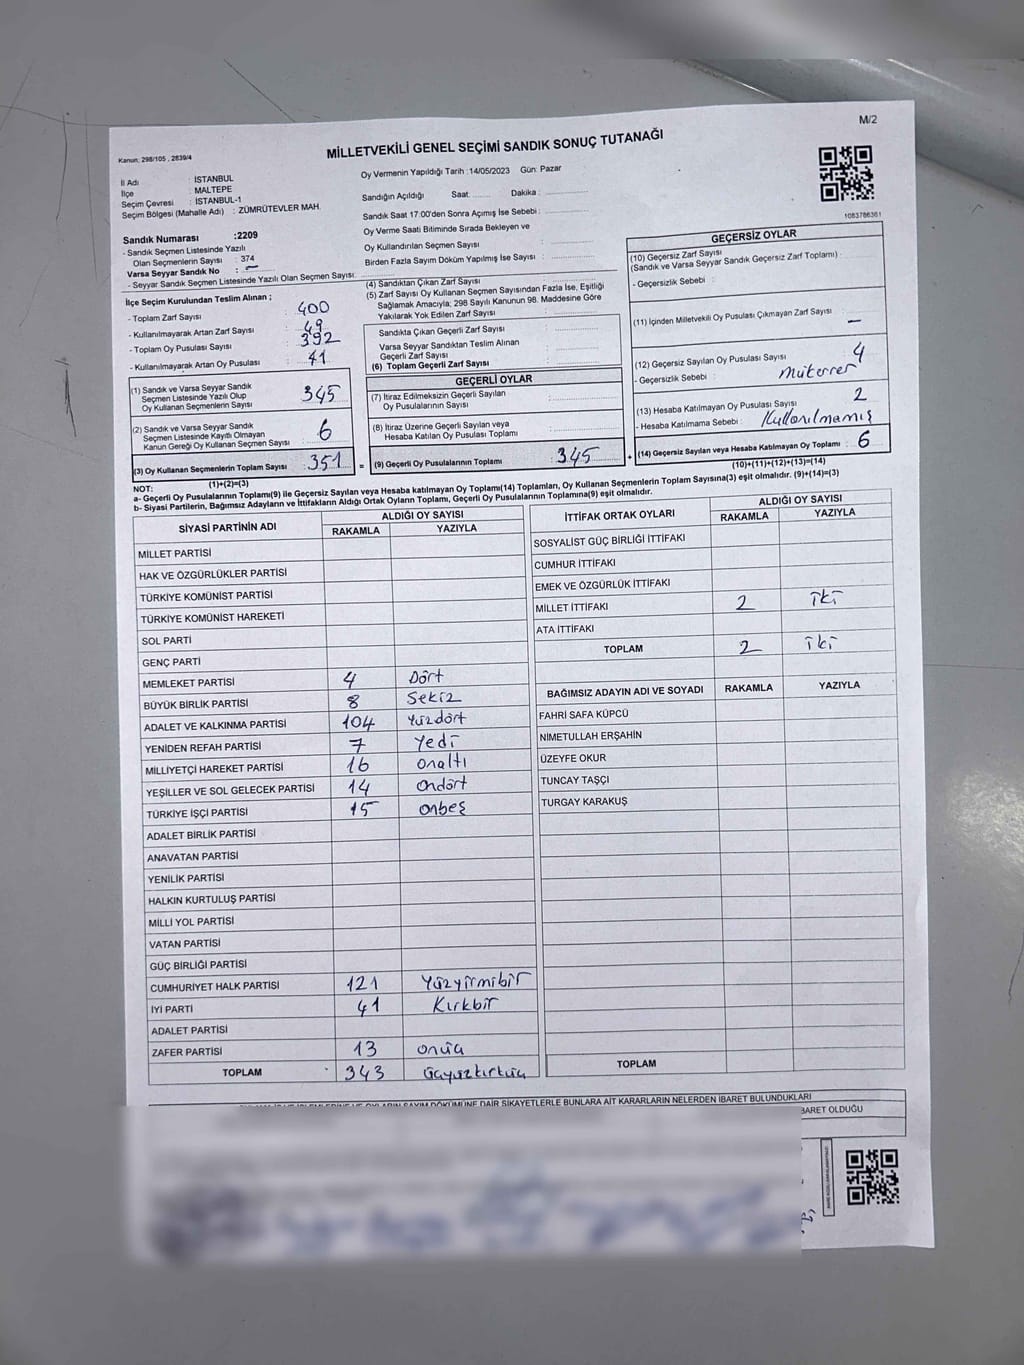 M/2
Kanun: 298/105 , 2839/4
MİLLETVEKİLİ GENEL SEÇİMİ SANDIK SONUÇ TUTANAĞI
İl Adı : İSTANBUL
İlçe : MALTEPE
Seçim Çevresi : İSTANBUL-1
Seçim Bölgesi (Mahalle Adı) : ZÜMRÜTEVLER MAH.
Oy Vermenin Yapıldığı Tarih :14/05/2023 Gün: Pazar
Sandığın Açıldığı Saat: Dakika :
Sandık Saat 17:00'den Sonra Açımış İse Sebebi :
Oy Verme Saati Bitiminde Sırada Bekleyen ve
Oy Kullandırılan Seçmen Sayısı :
Birden Fazla Sayım Döküm Yapılmış İse Sayısı :
1083786361
Sandık Numarası :2209
- Sandık Seçmen Listesinde Yazılı
Olan Seçmenlerin Sayısı : 374
Varsa Seyyar Sandık No : –
- Seyyar Sandık Seçmen Listesinde Yazılı Olan Seçmen Sayısı:
İlçe Seçim Kurulundan Teslim Alınan ;
- Toplam Zarf Sayısı : 400
- Kullanılmayarak Artan Zarf Sayısı : 49
- Toplam Oy Pusulası Sayısı : 392
- Kullanılmayarak Artan Oy Pusulası : 41
(1) Sandık ve Varsa Seyyar Sandık
Seçmen Listesinde Yazılı Olup
Oy Kullanan Seçmenlerin Sayısı : 345
(2) Sandık ve Varsa Seyyar Sandık
Seçmen Listesinde Kayıtlı Olmayan
Kanun Gereği Oy Kullanan Seçmen Sayısı : 6
(3) Oy Kullanan Seçmenlerin Toplam Sayısı : 351 =
(1)+(2)=(3)
(4) Sandıktan Çıkan Zarf Sayısı :
(5) Zarf Sayısı Oy Kullanan Seçmen Sayısından Fazla İse, Eşitliği
Sağlamak Amacıyla; 298 Sayılı Kanunun 98. Maddesine Göre
Yakılarak Yok Edilen Zarf Sayısı :
Sandıkta Çıkan Geçerli Zarf Sayısı :
Varsa Seyyar Sandıktan Teslim Alınan
Geçerli Zarf Sayısı :
(6) Toplam Geçerli Zarf Sayısı :
GEÇERLİ OYLAR
(7) İtiraz Edilmeksizin Geçerli Sayılan
Oy Pusulalarının Sayısı :
(8) İtiraz Üzerine Geçerli Sayılan veya
Hesaba Katılan Oy Pusulası Toplamı :
(9) Geçerli Oy Pusulalarının Toplamı : 345 +
GEÇERSİZ OYLAR
(10) Geçersiz Zarf Sayısı
(Sandık ve Varsa Seyyar Sandık Geçersiz Zarf Toplamı) :
- Geçersizlik Sebebi :
(11) İçinden Milletvekili Oy Pusulası Çıkmayan Zarf Sayısı : –
(12) Geçersiz Sayılan Oy Pusulası Sayısı : 4
- Geçersizlik Sebebi : Mükerrer
(13) Hesaba Katılmayan Oy Pusulası Sayısı : 2
- Hesaba Katılmama Sebebi : Kullanılmamış
(14) Geçersiz Sayılan veya Hesaba Katılmayan Oy Toplamı : 6
(10)+(11)+(12)+(13)=(14)
NOT:
a- Geçerli Oy Pusulalarının Toplamı(9) ile Geçersiz Sayılan veya Hesaba katılmayan Oy Toplamı(14) Toplamları, Oy Kullanan Seçmenlerin Toplam Sayısına(3) eşit olmalıdır. (9)+(14)=(3)
b- Siyasi Partilerin, Bağımsız Adayların ve İttifakların Aldığı Ortak Oyların Toplamı, Geçerli Oy Pusulalarının Toplamına(9) eşit olmalıdır.
SİYASİ PARTİNİN ADI ALDIĞI OY SAYISI
RAKAMLA YAZIYLA
MİLLET PARTİSİ
HAK VE ÖZGÜRLÜKLER PARTİSİ
TÜRKİYE KOMÜNİST PARTİSİ
TÜRKİYE KOMÜNİST HAREKETİ
SOL PARTİ
GENÇ PARTİ
MEMLEKET PARTİSİ 4 Dört
BÜYÜK BİRLİK PARTİSİ 8 Sekiz
ADALET VE KALKINMA PARTİSİ 104 Yüzdört
YENİDEN REFAH PARTİSİ 7 Yedi
MİLLİYETÇİ HAREKET PARTİSİ 16 Onaltı
YEŞİLLER VE SOL GELECEK PARTİSİ 14 Ondört
TÜRKİYE İŞÇİ PARTİSİ 15 Onbeş
ADALET BİRLİK PARTİSİ
ANAVATAN PARTİSİ
YENİLİK PARTİSİ
HALKIN KURTULUŞ PARTİSİ
MİLLİ YOL PARTİSİ
VATAN PARTİSİ
GÜÇ BİRLİĞİ PARTİSİ
CUMHURİYET HALK PARTİSİ 121 Yüzyirmibir
İYİ PARTİ 41 Kırkbir
ADALET PARTİSİ
ZAFER PARTİSİ 13 Onüç
TOPLAM 343 Üçyüzkırküç
İTTİFAK ORTAK OYLARI ALDIĞI OY SAYISI
RAKAMLA YAZIYLA
SOSYALİST GÜÇ BİRLİĞİ İTTİFAKI
CUMHUR İTTİFAKI
EMEK VE ÖZGÜRLÜK İTTİFAKI
MİLLET İTTİFAKI 2 İki
ATA İTTİFAKI
TOPLAM 2 İki
BAĞIMSIZ ADAYIN ADI VE SOYADI RAKAMLA YAZIYLA
FAHRİ SAFA KÜPCÜ
NİMETULLAH ERŞAHİN
ÜZEYFE OKUR
TUNCAY TAŞÇI
TURGAY KARAKUŞ
TOPLAM
DÖKÜMÜNE DAİR ŞİKAYETLERLE BUNLARA AİT KARARLARIN NELERDEN İBARET BULUNDUKLARI
İBARET OLDUĞU